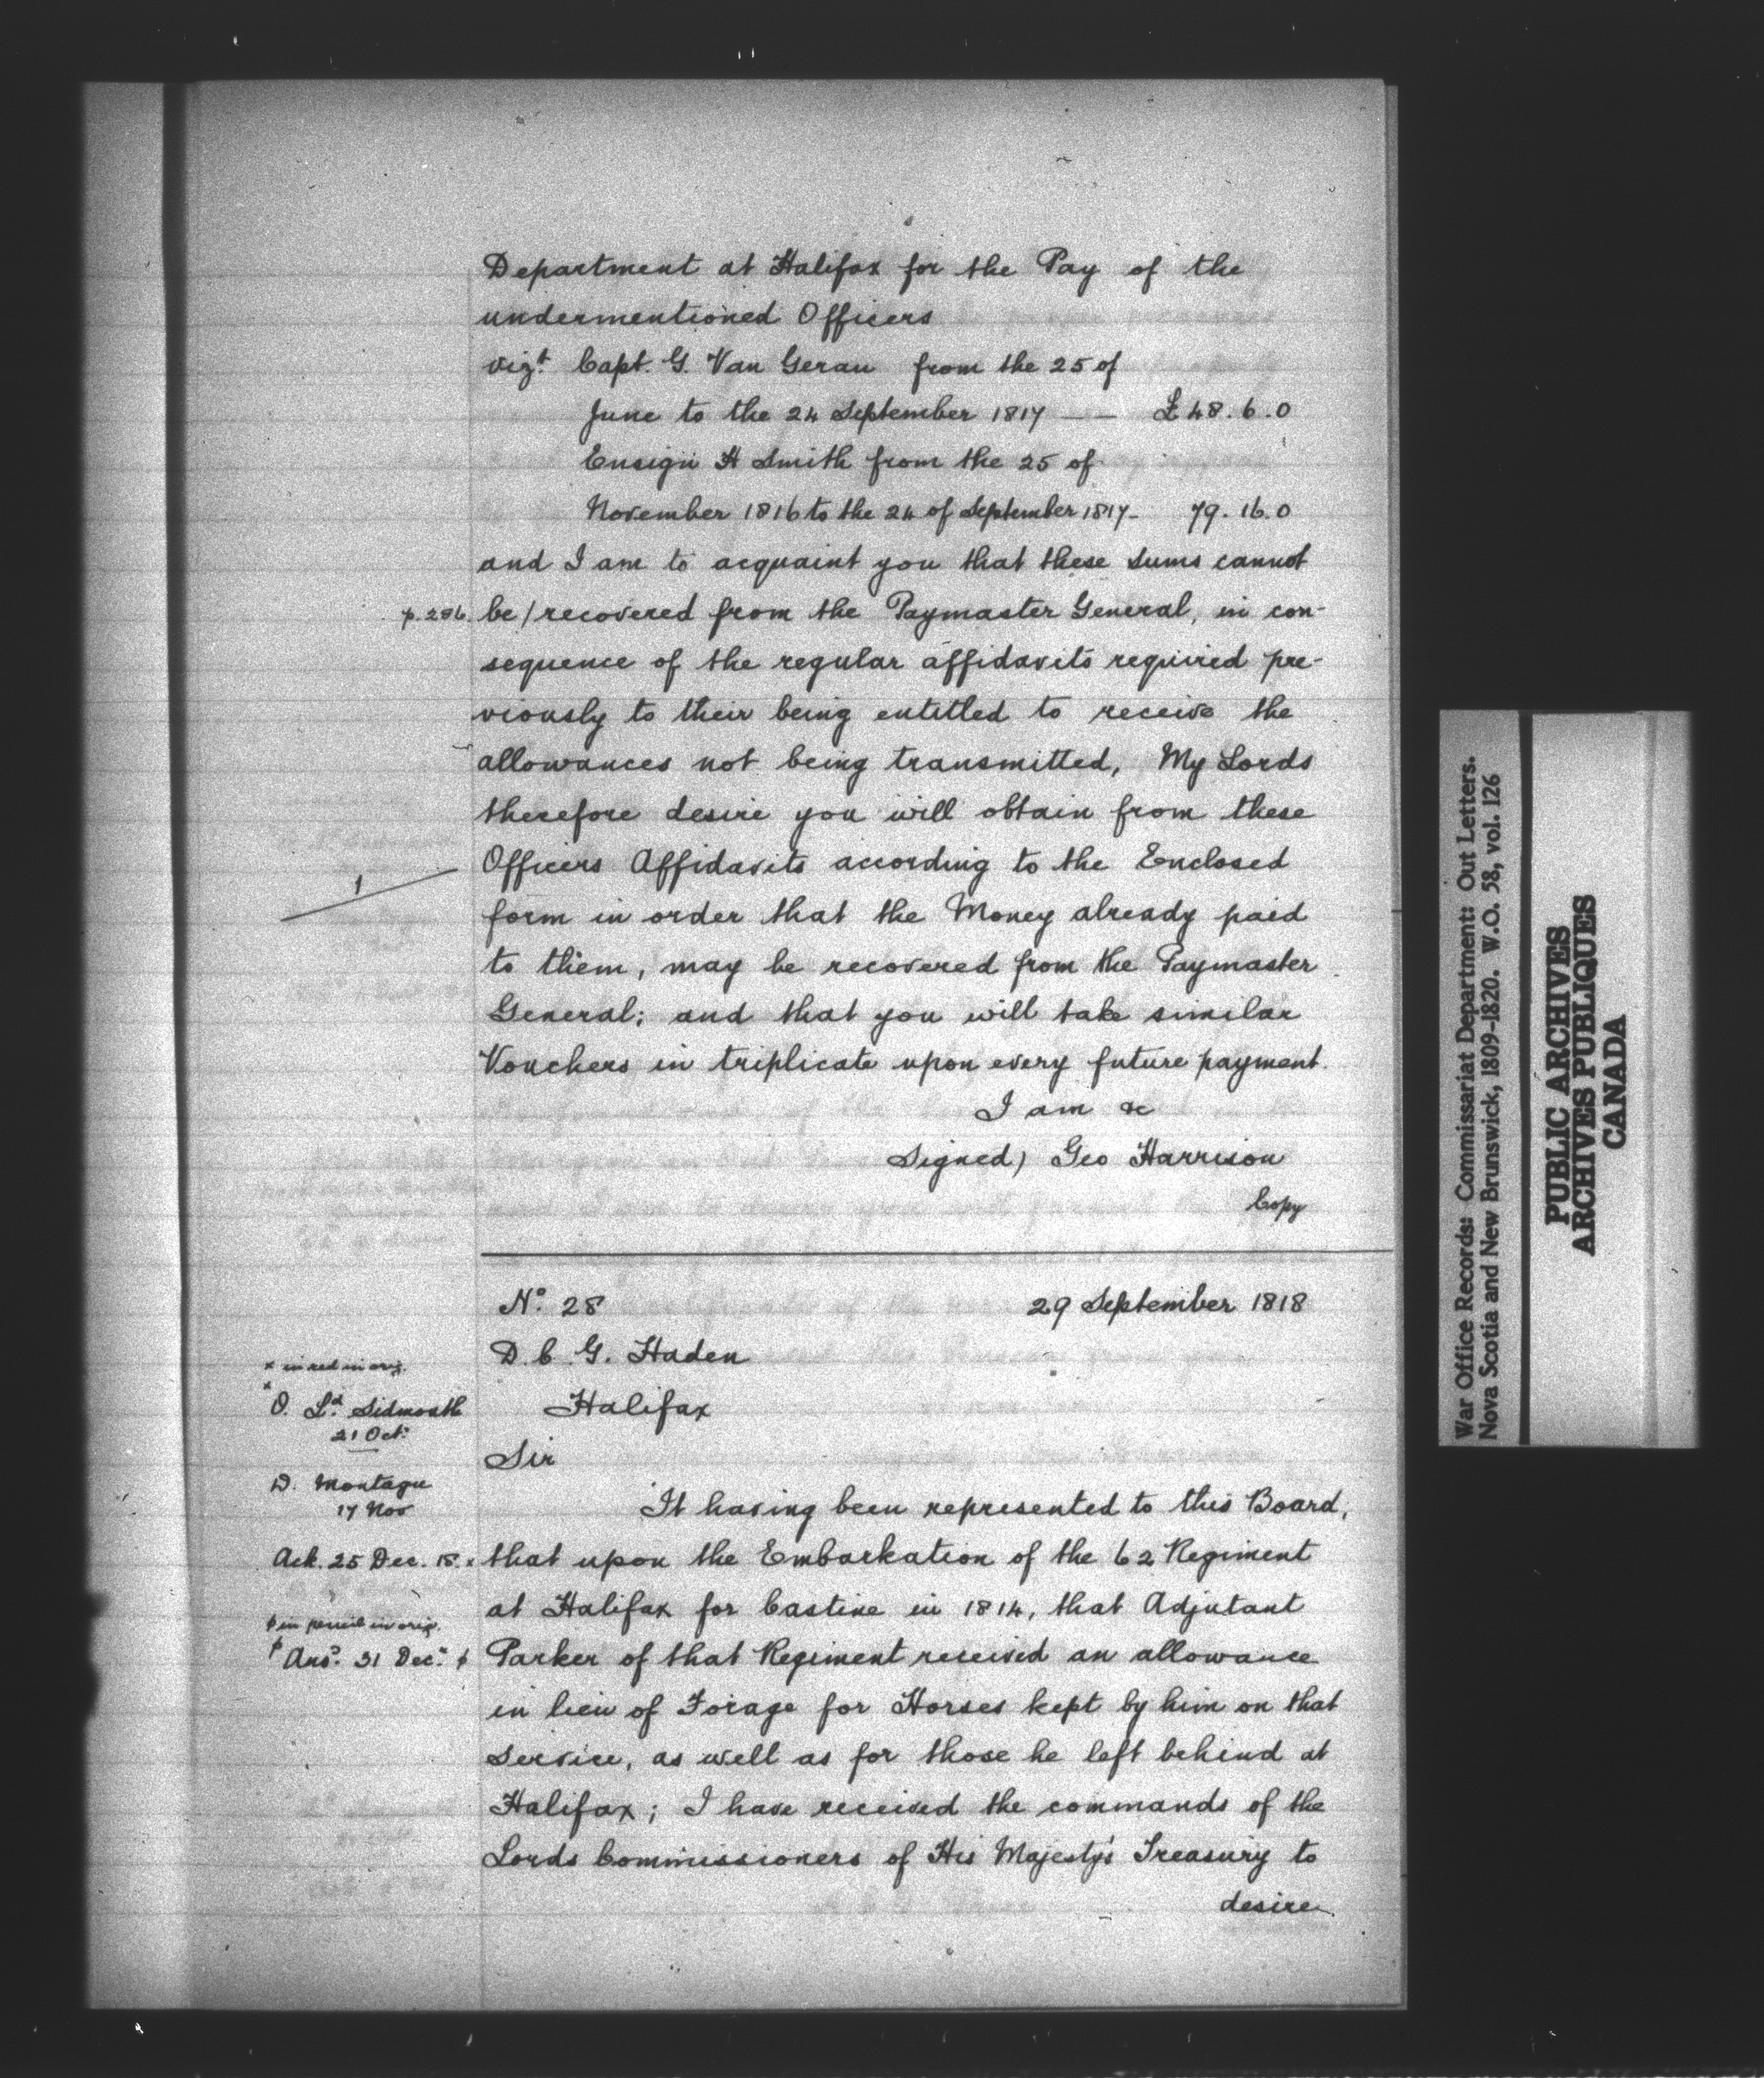 Department at Halifax for the Pay of the
undermentioned Officers
vizt. Capt. G. Van Gerau from the 25 of
June to the 24 September 1817 — — £48.6.0
Ensign H Smith from the 25 of
November 1816 to the 24 of September 1817- 79.16.0
and I am to acquaint you that these sums cannot
p.286. be/recovered from the Paymaster General, in con-
sequence of the regular affidavits required pre-
viously to their being entitled to receive the
allowances not being transmitted, My Lords
therefore desire you will obtain from these
Officers Affidavits according to the Enclosed
1
form in order that the Money already paid
to them, may be recovered from the Paymaster
General; and that you will take similar
Vouchers in triplicate upon every future payment.
I am &c
Signed) Geo Harrison
Copy
No. 28 29 September 1818
D. C. G. Haden
Halifax
Sir
x in red in orig.
x
O. Ld. Sidmouth
21 Oct.
D. Montagu
17 Nov
Ack. 25 Dec. 18. x
ϕ in pencil in orig.
ϕ Ansd. 31 Decr. ϕ
It having been represented to this Board,
that upon the Embarkation of the 62 Regiment
at Halifax for Castine in 1814, that Adjutant
Parker of that Regiment received an allowance
in lieu of Forage for Horses kept by him on that
Service, as well as for those he left behind at
Halifax; I have received the commands of the
Lords Commissioners of His Majesty's Treasury to
desire
War Office Records: Commissariat Department: Out Letters.
Nova Scotia and New Brunswick, 1809-1820. W.O. 58, vol. 126
PUBLIC ARCHIVES
ARCHIVES PUBLIQUES
CANADA